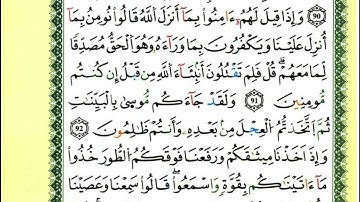 ٩٠ وَإِذَا قِيلَ لَهُمْ ءَامِنُوا۟ بِمَآ أَنزَلَ ٱللَّهُ قَالُوا۟ نُؤْمِنُ بِمَآ
أُنزِلَ عَلَيْنَا وَيَكْفُرُونَ بِمَا وَرَآءَهُۥ وَهُوَ ٱلْحَقُّ مُصَدِّقًا
لِّمَا مَعَهُمْ ۗ قُلْ فَلِمَ تَقْتُلُونَ أَنۢبِيَآءَ ٱللَّهِ مِن قَبْلُ إِن كُنتُم
مُّؤْمِنِينَ ٩١ وَلَقَدْ جَآءَكُم مُّوسَىٰ بِٱلْبَيِّنَٰتِ
ثُمَّ ٱتَّخَذْتُمُ ٱلْعِجْلَ مِنۢ بَعْدِهِۦ وَأَنتُمْ ظَٰلِمُونَ ٩٢
وَإِذْ أَخَذْنَا مِيثَٰقَكُمْ وَرَفَعْنَا فَوْقَكُمُ ٱلطُّورَ خُذُوا۟
مَآ ءَاتَيْنَٰكُم بِقُوَّةٍ وَٱسْمَعُوا۟ ۖ قَالُوا۟ سَمِعْنَا وَعَصَيْنَا